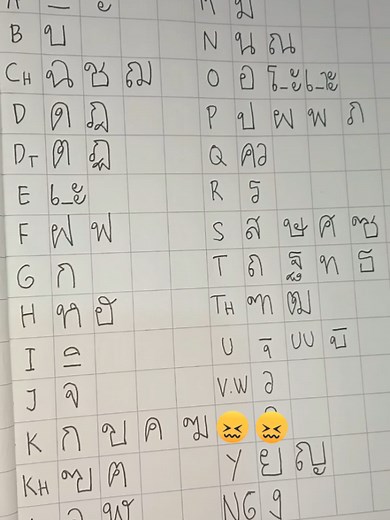 B บ
CH ฉ ช ฌ
D ด ฎ
DT ต ฏ
E เ-ะ
F ฝ ฟ
G ก
H ห ฮ
I
J จ
K ก ข ค ฆ
KH ฃ ฅ
ม
N น ณ
O อ โ-ะ เ-าะ
P ป ผ พ ภ
Q คว
R ร
S ส ษ ศ ซ
T ถ ฐ ท ธ
TH ฑ ฒ
U
V.W ว
Y ย ญ
NG ง